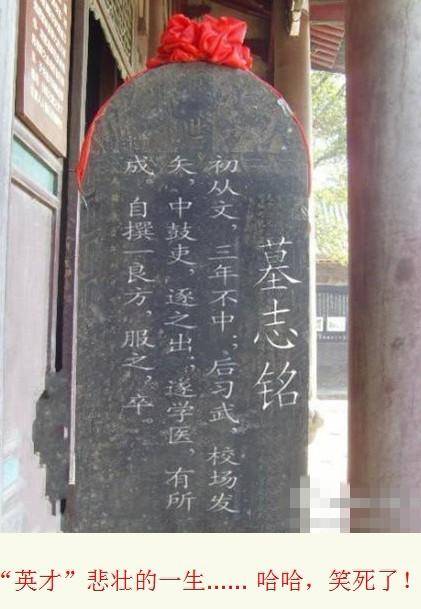 墓志铭
初从文，三年不中；后习武，校场发
矢，中鼓吏，逐之出；遂学医，有所
成。自撰一良方，服之，卒。
“英才”悲壮的一生...... 哈哈，笑死了！